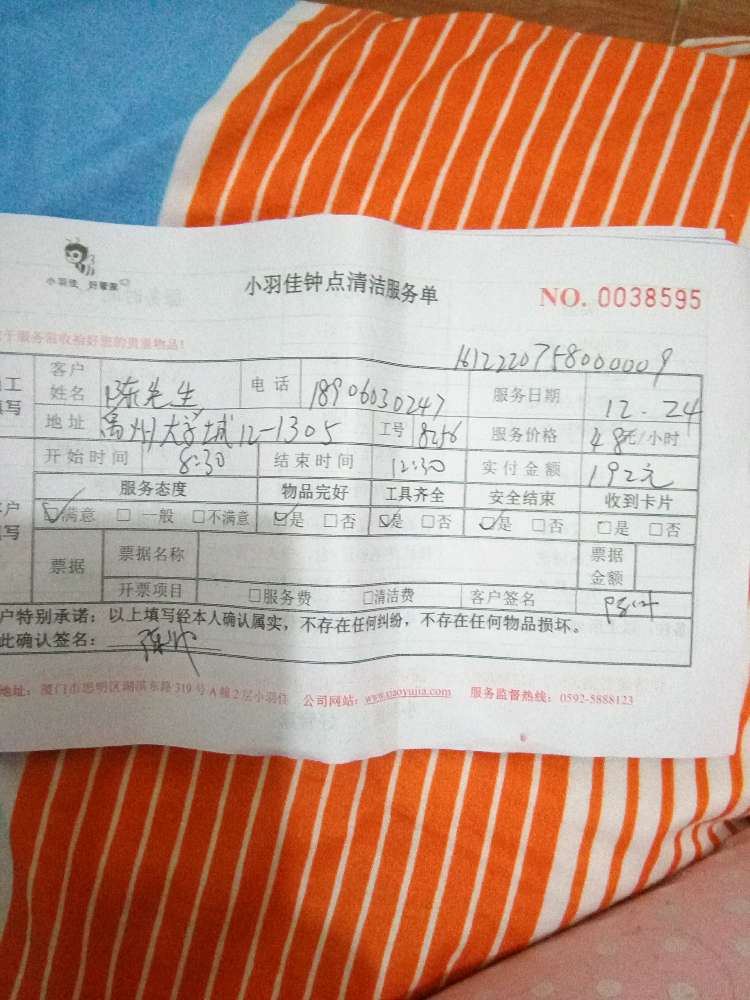 小羽佳 好管家
小羽佳钟点清洁服务单
NO. 0038595
服务前收拾好您的贵重物品!
1612220758000009
客户姓名 陈先生 电话 18906030247 服务日期 12.24
地址 禹州大学城12-1305 工号 8256 服务价格 48元/小时
开始时间 8:30 结束时间 12:30 实付金额 192元
服务态度 物品完好 工具齐全 安全结束 收到卡片
☑满意 □一般 □不满意 ☑是 □否 ☑是 □否 ☑是 □否 □是 □否
票据 票据名称 票据金额
开票项目 □服务费 □清洁费 客户签名
户特别承诺：以上填写经本人确认属实，不存在任何纠纷，不存在任何物品损坏。
此确认签名：
地址：厦门市思明区湖滨东路319号A幢2层小羽佳 公司网站：www.xiaoyujia.com 服务监督热线：0592-5888123